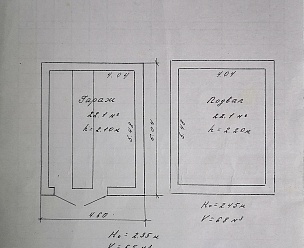 4.04
Гараж
22.1 м²
h=2.10м
5.48
6.04
4.60
Н=2.35м
V=65 м³
4.04
Подвал
22.1 м²
h=2.20м
5.48
Н=2.45м
V=68 м³